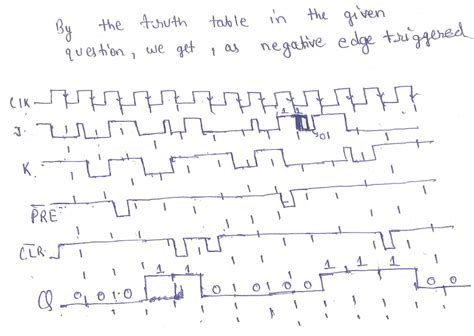 By the truth table in the given
question, we get, as negative edge triggered
CLK
J
1 1
01
K
PRE
CLR
Q 0 0 1 0 1 1 0 1 0 0 0 1 1 1 0 0